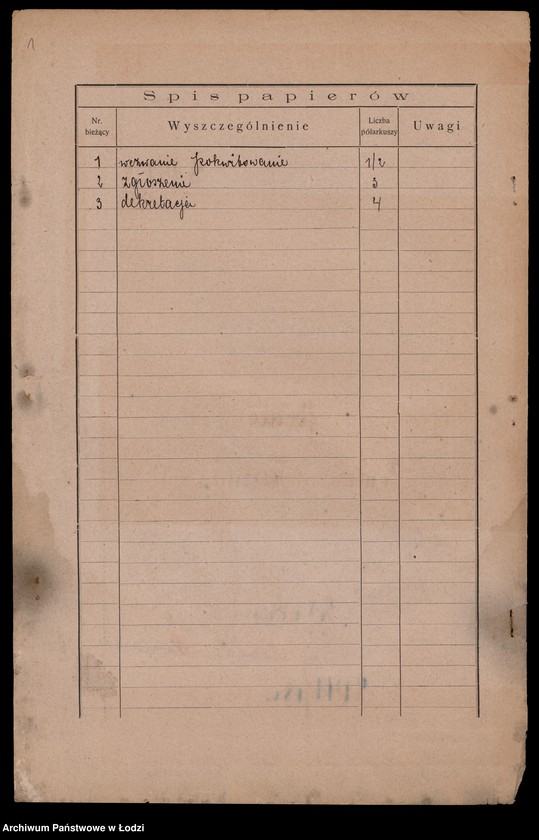 1
Spis papierów
Nr. bieżący Wyszczególnienie Liczba półarkuszy Uwagi
1 wezwanie pokwitowanie 1/2
2 zgłoszenie 3
3 dekretacja 4
Archiwum Państwowe w Łodzi